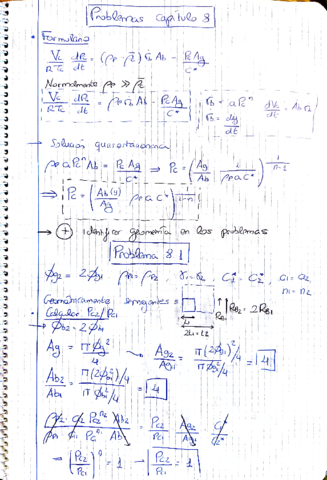 Problemas capítulo 8
Formulario
Vc/RTc dPc/dt = (ρp - ρ̄c) ṙb Ab - Pc Ag/C*
Normalmente ρp >> ρ̄c
Vc/RTc dPc/dt = ρp ṙb Ab - Pc Ag/C*
ṙb = a Pc^n dVc/dt = Ab ṙb
ṙb = dy/dt
→ Solución quasiestacionaria
ρp a Pc^n Ab = Pc Ag/C* ⇒ Pc = (Ag/Ab 1/(ρp a C*))^(1/(n-1))
⇒ Pc = (Ab(y)/Ag ρp a C*)^(1/(1-n))
→ + Identificar geometría en los problemas
Problema 8.1
Øg2 = 2Øg1 ρp1 = ρp2, C1* = C2*, a1 = a2,
n1 = n2
Geométricamente semejantes =
RB2 = 2RB1
2L1 = L2
Calcular Pc2/Pc1
Øb2 = 2Øb1
Ag = πØg²/4 → Ag2/Ag1 = π(2Øg1)²/4 / πØg1²/4 = 4
Ab2/Ab1 = π(2Øb1)²/4 / πØb1²/4 = 4
ρp2 a2 Pc2^n Ab2 / ρp1 a1 Pc1^n Ab1 = Pc2/Pc1 Ag2/Ag1 C*/C*
→ [Pc2/Pc1]^n = 1 → [Pc2/Pc1] = 1